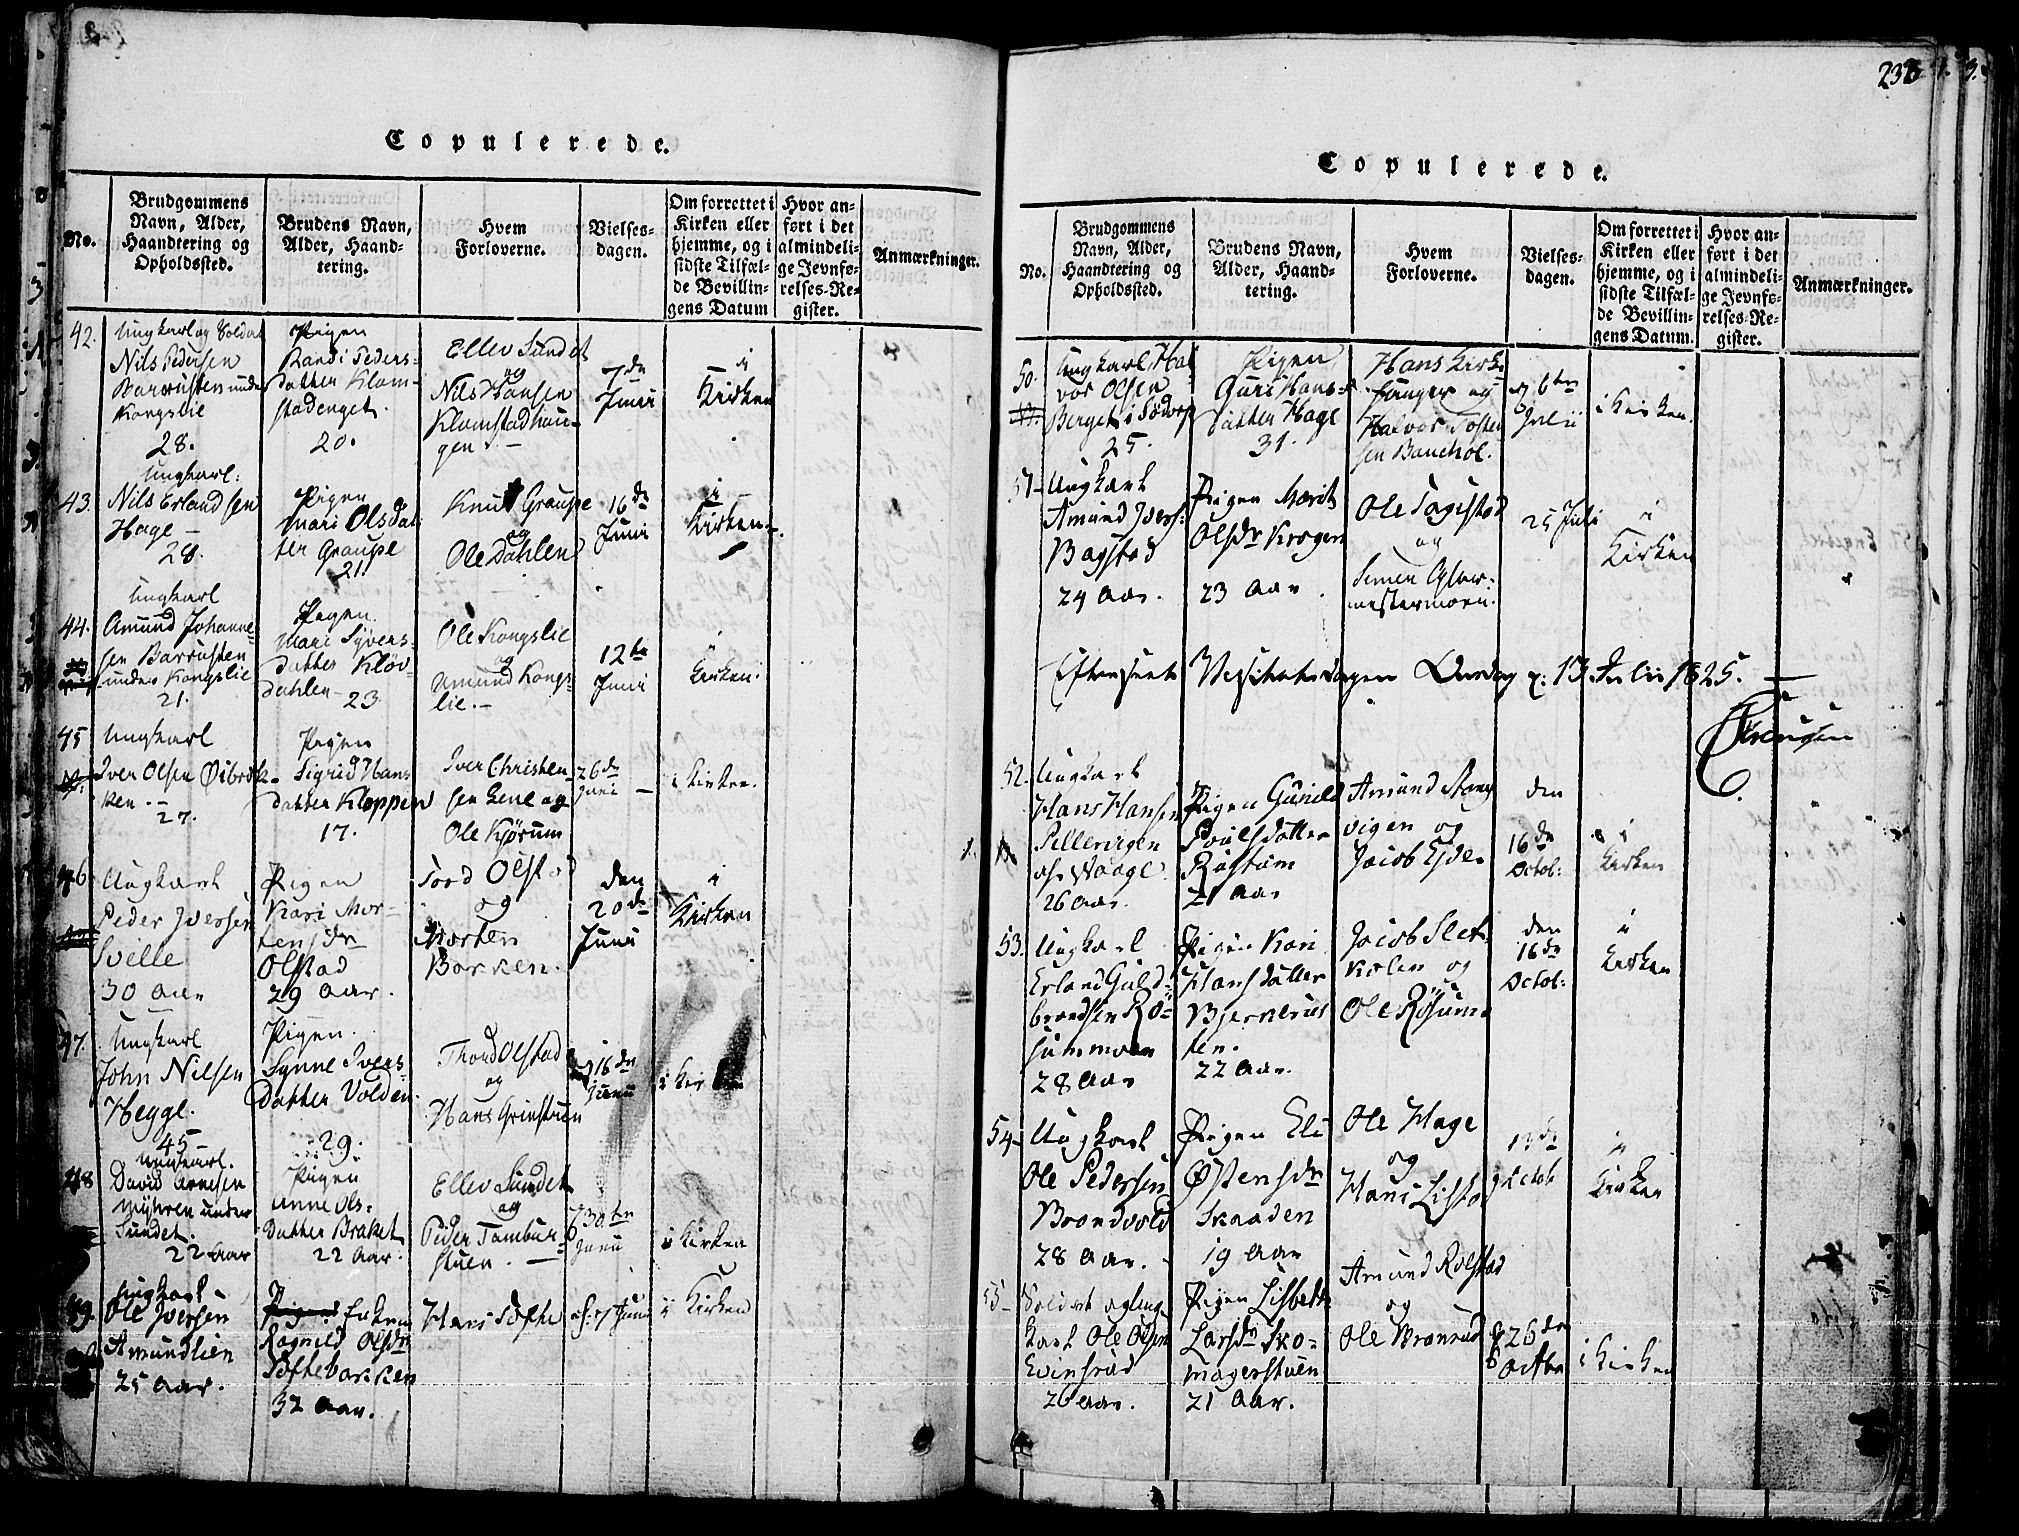 Copulerede.
No.
Brudgommens
Navn, Alder,
Haandtering og
Opholdssted.
Brudens Navn,
Alder, Haand-
tering.
Hvem
Forloverne.
Vielses-
dagen.
Om forrettet i
Kirken eller
hjemme, og i
sidste Tilfæl-
de Bevillin-
gens Datum
Hvor an-
ført i det
almindeli-
ge Jevnfø-
relses-Re-
gister.
Anmærkninger.
42.
Ungkarl og Soldat
Nils Pedersen
Barrusten under
Kongslie
28.
Pigen
Randi Peders-
datter Klom-
stadenget.
20.
Ellev Sundet
og
Nils Hansen
Klomstadhau-
gen. -
7de
Junii
i
Kirken
43.
Ungkarl:
Nils Erlandsen
Hage -
28.
Pigen
Mari Olsdat-
ter Graupe
21.
Knut Graupe
og
Ole Dahlen
16de
Junii
i
Kirken -
44.
Ungkarl
Amund Johanne-
sen Barrusten
under Kongslie
21.
Pigen
Mari Syvers-
datter Kløv-
dahlen - 23.
Ole Kongslie
og
Amund Kongs-
lie. -
12te
Junii
i
Kirken.
45
Ungkarl
Iver Olsen Øibræk-
ken. -
27.
Pigen
Sigrid Hans
datter Kloppen
17.
Iver Christen-
sen Lene og
Ole Kjørum
26de
Juni -
i Kirken.
46
Ungkarl
Peder Iversen
Sville
30 Aar
Pigen
Kari Mor-
tensdr
Olstad
29 Aar.
Tord Olstad
og
Morten
Barken.
den
20de
Junii
i
Kirken
47.
Ungkarl
John Nilsen
Hegge.
45 -
Pigen.
Synne Ivers-
datter Volden.
29.
Thord Olstad
og
Hans Grinstuen
16de
Junii
i Kirken
48
Ungkarl.
David Arnesen
Myhren under
Sundet.
22 Aar
Pigen
Anne Ols-
datter Braket
22 Aar.
Ellev Sundet
og
Peder Tambur-
stuen. -
30te
Junii
i Kirken
49.
Ungkarl
Ole Iversen
Amundlien
25 Aar.
Pigen Enken
Ragnild Olsdr
Toftebakken
32 Aar.
Hans Tofte
i Kirken
232
Copulerede.
No.
Brudgommens
Navn, Alder,
Haandtering og
Opholdssted.
Brudens Navn,
Alder, Haand-
tering.
Hvem
Forloverne.
Vielses-
dagen.
Om forrettet i
Kirken eller
hjemme, og i
sidste Tilfæl-
de Bevillin-
gens Datum.
Hvor an-
ført i det
almindeli-
ge Jevnfø-
relses-Re-
gister.
Anmærkninger.
50.
Ungkarl Hal-
vor Olsen
Berget i Sødorp
25.
Pigen
Guri Hans-
datter Hage
31.
Hans Kirke-
sanger og
Halvor Tosten-
sen Baukol.
d 6te
Julii
i Kirken.
51 -
Ungkarl
Amund Ivers:
Bagstad
24 Aar.
Pigen Marit
Olsdr Krogen
23 Aar.
Ole Tagestad
og
Simen Glas-
mestermoen.
25 Juli
i
Kirken
Efterseet Visitatsdagen Onsdag d: 13 Julii 1825. -
52.
Ungkarl
Hans Hansen
Pillerviken
af Vaage.
26 Aar.
Pigen Gunild
Poulsdatter
Rustum
21 Aar
Amund Stang
vigen og
Jacob Eide
den
16de
Octob:
i
Kirken
53.
Ungkarl
Erland Guld-
brandsen Rø-
summoen
28 Aar
Pigen Kari
Hansdatter
Bjerkerus
ten.
22 Aar.
Jacob Slet-
kolen og
Ole Røsum
den
16de
Octob:
i
Kirken
54 -
Ungkarl
Ole Pedersen
Brandvold
28 Aar.
Pigen Eli
Østensdr
Skaaden
19 Aar
Ole Hage
og
Hans Listad
Octob
i
Kirken
55 -
Soldat og Ung-
karl Ole Olsen
Evinsrud
26 Aar.
Pigen Lisbeth
Larsdr Sko-
magerstuen
21 Aar.
Amund Rolstad
og
Ole Bronrud
d 26de
Octbr
i Kirken